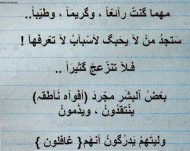 مهما كنت رائعاً ، وكريماً ، وطيباً..
ستجد من لا يحبك لأسباب لا تعرفها !
فلا تنزعج كثيراً ..
بعض البشر مجرد (أفواه ناطقه)
ينتقدون ، ويذمون
وليتهم يدركون أنهم { غافلون }